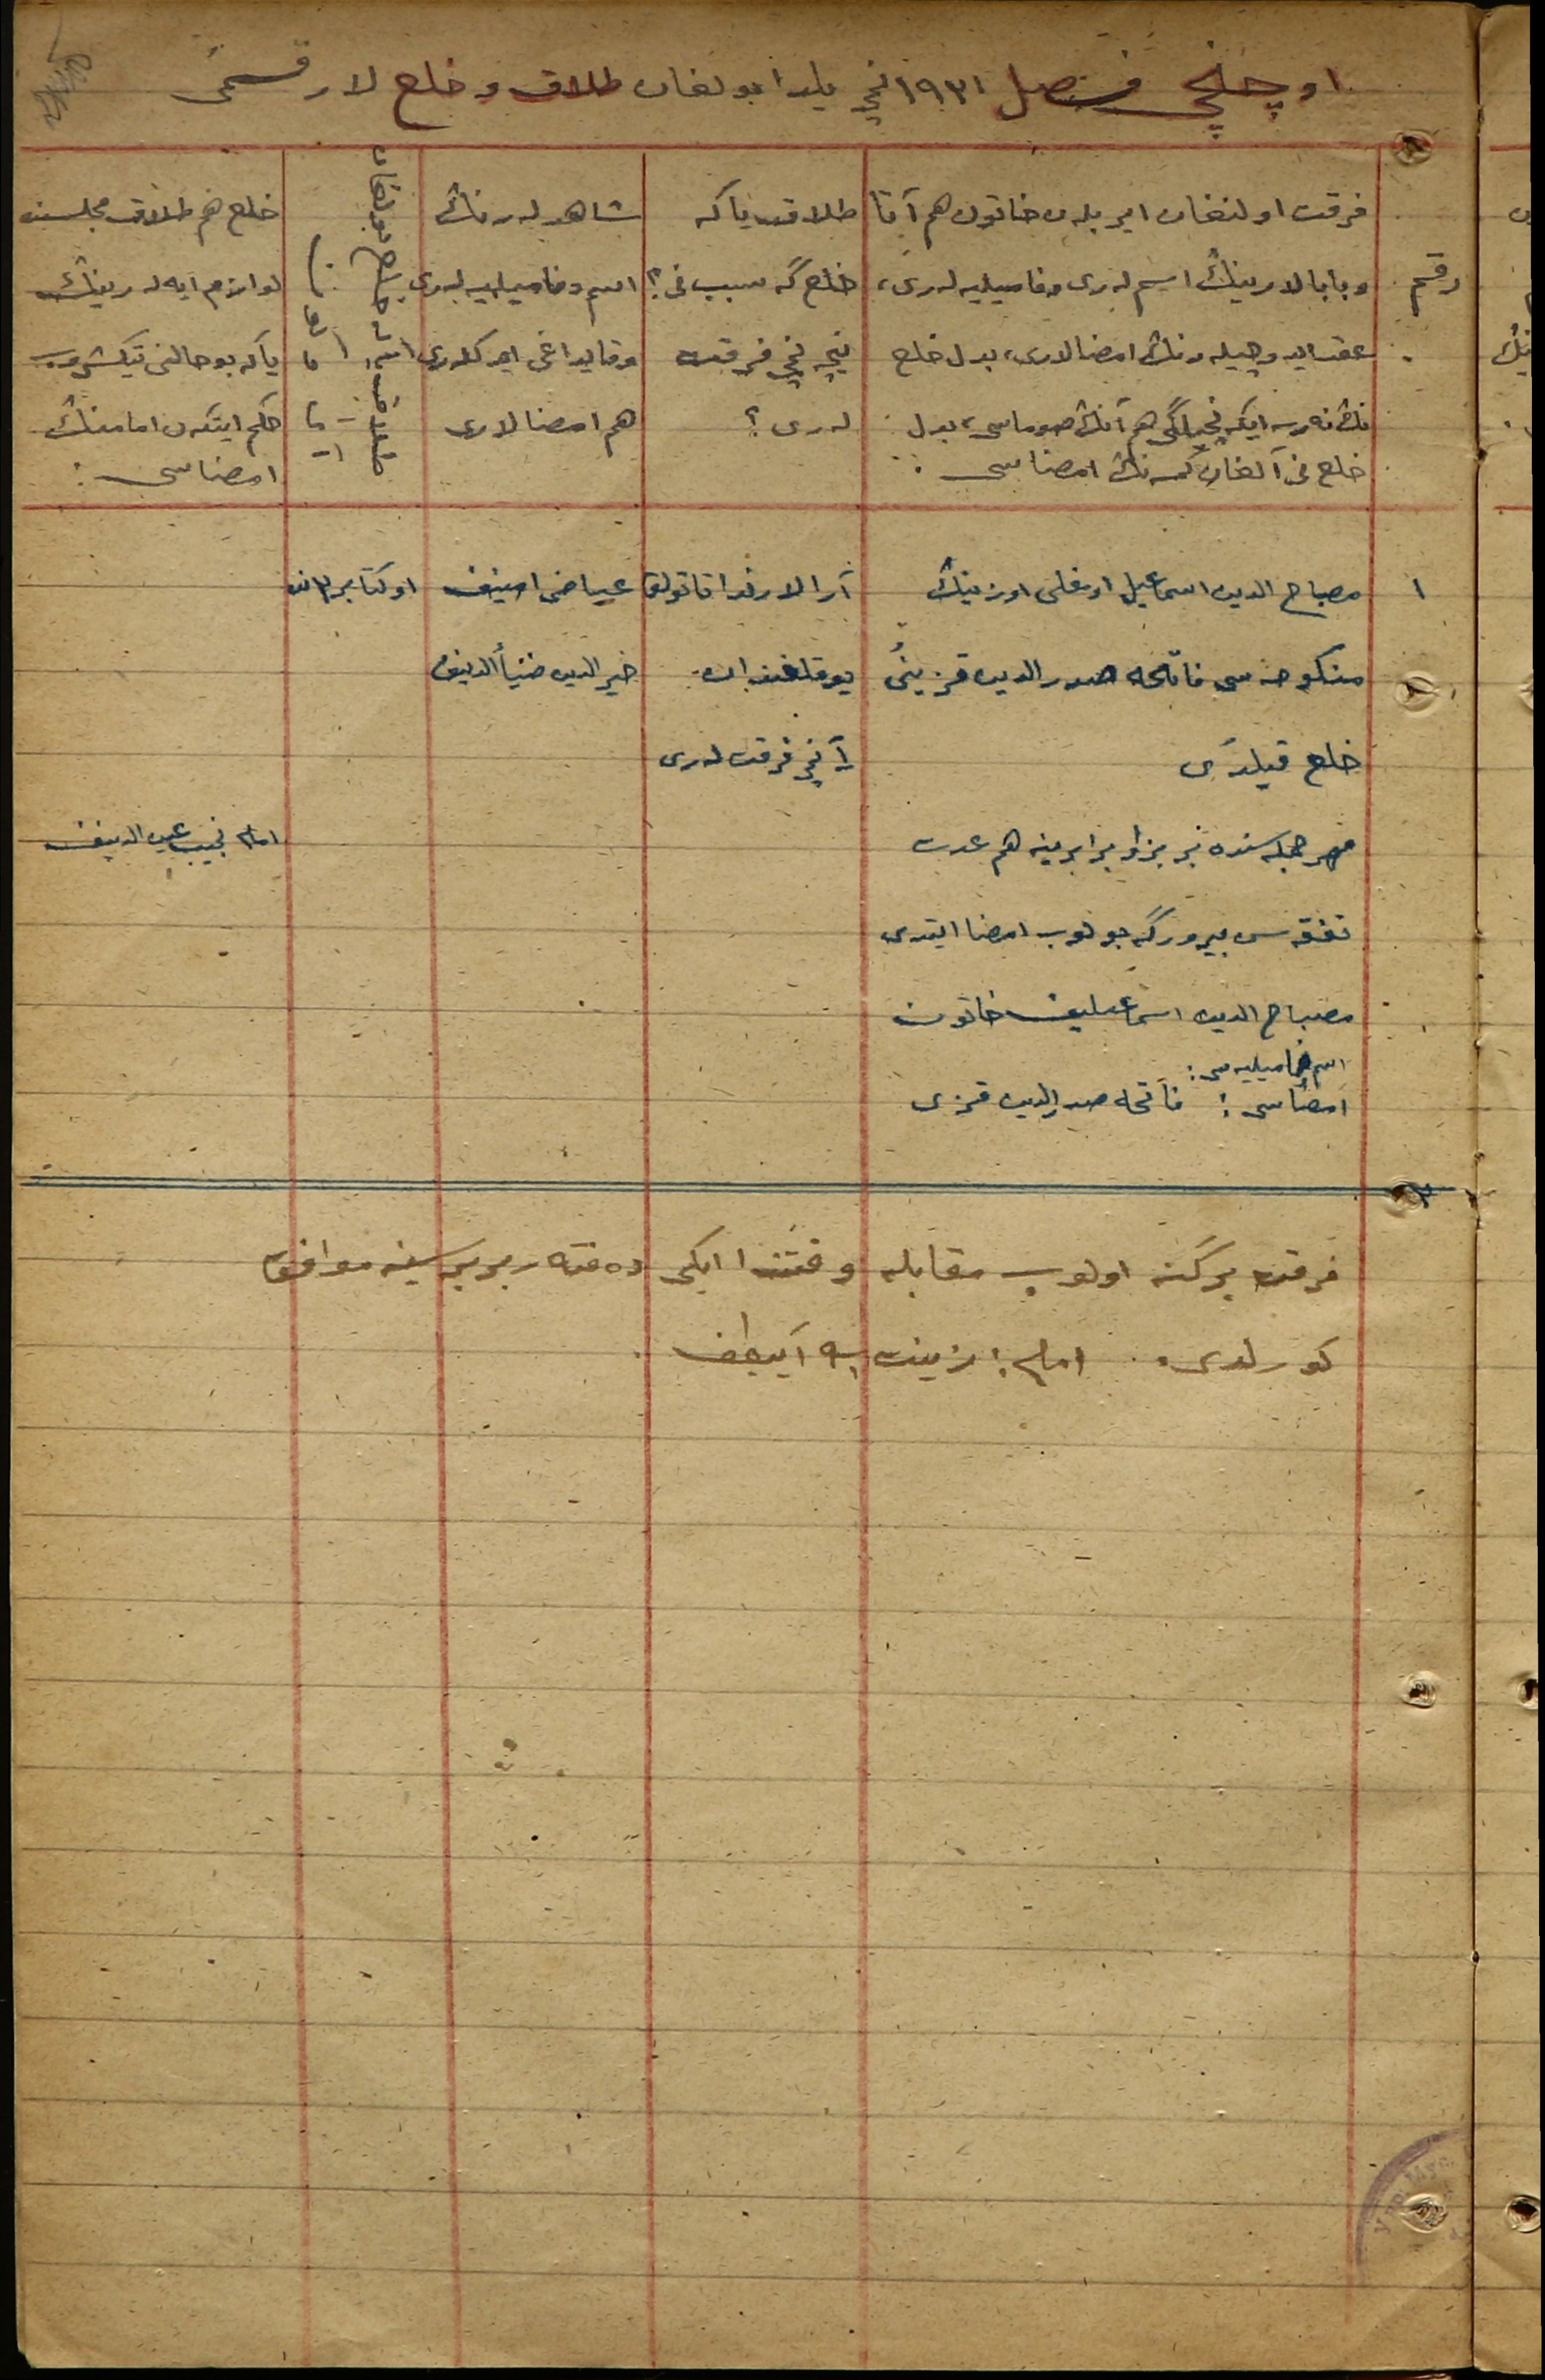 اوچنچی فصل ١٩٣١ نچی یلدا بولغان طلاق و خلع لار قسمی
رقم
فرقت اولنغان ایر بلەن خاتون هم آتا
و بابالارینڭ اسم لەری و فامیلیە لەری،
عقد ایدوچیلەرنڭ امضالاری، بدل خلع
نڭ نەرسە ایکەنچیلگی هم آنڭ صوماسی، بدل
خلع نی آلغان کمسەنڭ امضاسی:
طلاق یاکە
خلع گە سبب نی؟
نیچە نچی فرقت
لەری؟
شاهدلەرنڭ
اسم و فامیلیە لەری
و قایداغی ایرکلەری
هم امضالاری
طلاق یاکە خلع بولغان
خلع هم طلاق مجلسنە
لوازم ایەلەرینڭ
یاکە بو حالنی تیکشروب
حکم ایتکەن امامنڭ
امضاسی:
١
مصباح الدین اسماعیل اوغلی اوزینڭ
منکوحەسی فاتحە صدرالدین قزینی
خلع قیلدی
مهر جملەسندە بر بزاو برابرینە هم عدت
نفقەسی بیرورگە بولوب امضا ایتدی
مصباح الدین اسماعیلیف خاتون
اسم فامیلیەسی:
امضاسی: فاتحە صدرالدین قزی
آرالارندا تاتولق
یوقلغندان
١ نچی فرقت لەری
عیاضی امینف
خیرالدین ضیاألدینف
اوکتابر
امام نجیب عین الدینف
فرقت برگنە اولوب مقابلە وقتندا ایکی دەفتەر بربرسینە موافق
کورلدی. امام: